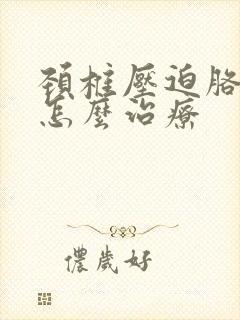 頚椎壓迫胳
怎麼治療
儂歲好